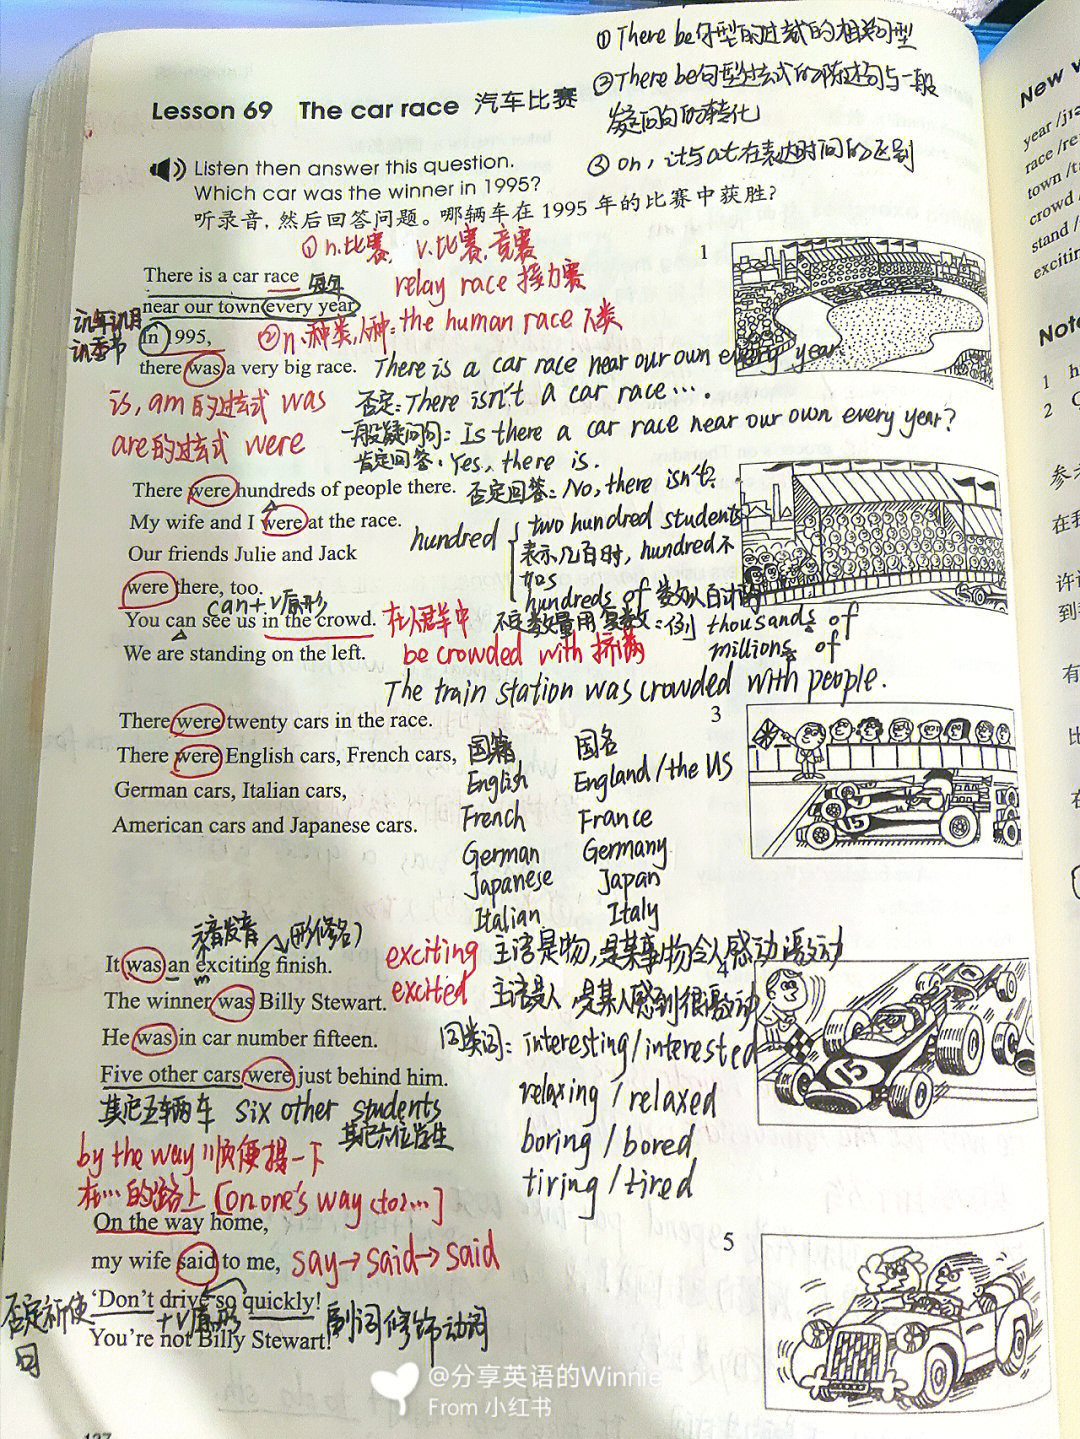 ① There be句型的过去式的相关句型
Lesson 69 The car race 汽车比赛
②There be句型过去式的陈述句与一般
疑问句的转化
③ on, in与at在表达时间的区别
Listen then answer this question.
Which car was the winner in 1995?
听录音，然后回答问题。哪辆车在 1995 年的比赛中获胜？
① n.比赛, v.比赛,竞赛
1
There is a car race 每年
relay race 接力赛
near our town every year.
in年in月
in季节
In 1995,
②n.种类,人种: the human race 人类
there was a very big race.
There is a car race near our own every year.
is, am 的过去式 was
否定: There isn't a car race…
are的过去式 were
一般疑问句: Is there a car race near our own every year?
肯定回答: Yes, there is.
There were hundreds of people there.
否定回答: No, there isn't.
My wife and I were at the race.
hundred
two hundred students
Our friends Julie and Jack
表示几百时, hundred不
加s
were there, too.
hundreds of 数以百计的
can+v原形
You can see us in the crowd.
在人群中
不定数量用复数: 例 thousands of
millions of
We are standing on the left.
be crowded with 挤满
The train station was crowded with people.
3
There were twenty cars in the race.
There were English cars, French cars,
国籍 国名
German cars, Italian cars,
English England/the US
American cars and Japanese cars.
French France
German Germany
Japanese Japan
Italian Italy
15
元音发音 (形修名)
It was an exciting finish.
exciting 主语是物,是某事物令人感动激动
4
The winner was Billy Stewart.
excited 主语是人 是某人感到很激动
He was in car number fifteen.
同类词: interesting/interested
15
Five other cars were just behind him.
relaxing / relaxed
其它五辆车 six other students
其它六位学生
boring / bored
by the way 顺便提一下
tiring / tired
在…的路上 [on one's way (to)…]
On the way home,
5
my wife said to me,
say→said→said
'Don't drive so quickly!
否定祈使
句
+v原形
You're not Billy Stewart!'
副词修饰动词
127
@分享英语的Winnie
From 小红书
New w
year /j
race /re
town /t
crowd
stand /
excitin
Note
1 h
2
参
在我
许
到
有
比
在